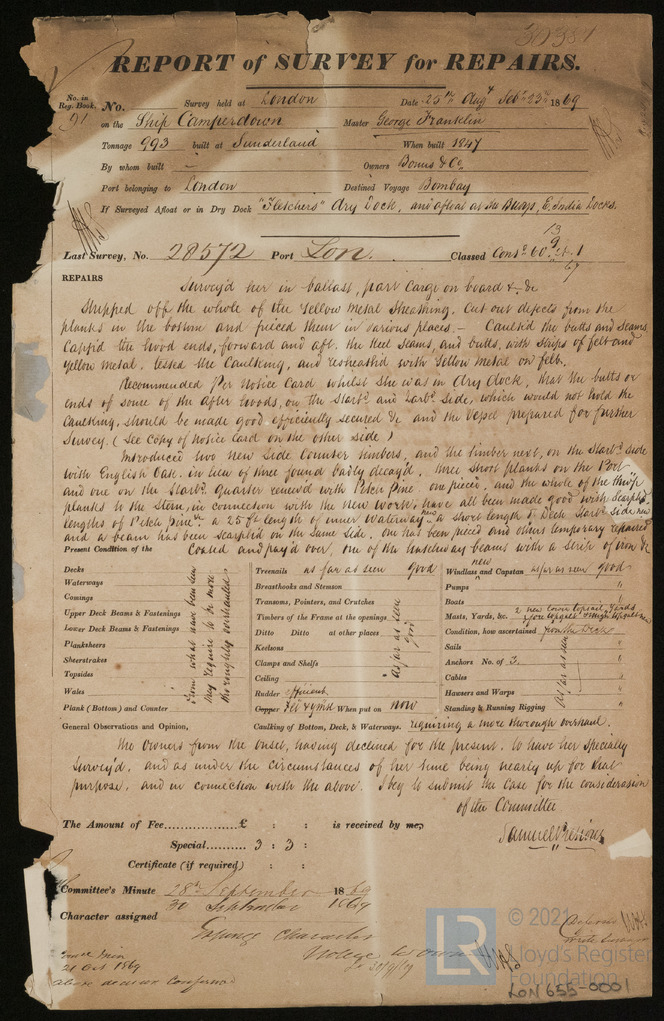 30381
REPORT of SURVEY for REPAIRS.
No. in Reg. Book. 91
No. Survey held at London Date 25th Augt Septr 23rd 1869
on the Ship Camperdown Master George Franklin
Tonnage 993 built at Sunderland When built 1847
By whom built — Owners Bonus & Co.
Port belonging to London Destined Voyage Bombay
If Surveyed Afloat or in Dry Dock "Fletchers" Dry Dock, and afloat at the Buoys, E. India Docks.
Last Survey, No. 28572 Port Lon. Classed Contd 60
REPAIRS
Survey'd her in ballast, part Cargo on board &c &c
Stripped off the whole of the Yellow Metal Sheathing. Cut out defects from the
planks in the bottom and pieced them in various places. — Caulk'd the butts and seams
Capp'd the hood ends, forward and aft, the Keel Seams, and butts, with Strips of felt and
Yellow Metal, tested the Caulking, and resheath'd with Yellow Metal on felt.
Recommended Per Notice Card whilst she was in Dry dock, that the butts or
ends of some of the After hoods, on the Starbd and Larbd Side, which would not hold the
Caulking, should be made good efficiently secured &c and the Vessel prepared for further
Survey. (See copy of Notice Card on the other side)
Introduced two new Side Counter timbers, and the timber next, on the Starbd side
with English Oak, in lieu of three found badly decay'd. Three short planks on the Port
and one on the Starbd Quarter renew'd with Pitch Pine one pieced, and the whole of the
planks to the Stern, in connection with the new work, have all been made good with
lengths of Pitch Pine a 25 ft length of inner Waterway new a short length of Deck Starbd Side new
and a beam has been scarph'd on the same side. One has been pieced and others temporary repaired
Coated and pay'd over, one of the hatchway beams with a strip of iron &c
Present Condition of the
Decks
Waterways
Comings
Upper Deck Beams & Fastenings
Lower Deck Beams & Fastenings
Planksheers
Sheerstrakes
Topsides
Wales
Plank (Bottom) and Counter
From what have been seen
may require to be more
thoroughly overhauled
Treenails as far as seen good
Breasthooks and Stemson
Transoms, Pointers, and Crutches
Timbers of the Frame at the openings
Ditto Ditto at other places
Keelsons
Clamps and Shelfs
Ceiling
Rudder efficient
Copper Felt & YMtl When put on now
as far as seen
good
Windlass new and Capstan as far as seen good
Pumps "
Boats "
Masts, Yards, &c.
Condition, how ascertained from the Decks
Sails "
Anchors No. of 3. "
Cables "
Hawsers and Warps "
Standing & Running Rigging "
as far as seen
General Observations and Opinion, Caulking of Bottom, Deck, & Waterways. requiring a more thorough overhaul.
The Owners from the onset, having declined for the present, to have her Specially
Survey'd, and as under the circumstances of her time being nearly up for that
purpose, and in connection with the above. I beg to submit the Case for the consideration
of the Committee
The Amount of Fee...............£ : : is received by me,
Special......... 3 : 3 :
Certificate (if required) : :
Committee's Minute 28th September 1869
30 September 1869
Character assigned Expunge Character
21 Oct 1869
above decision Confirmed
LR
© 2021
Lloyd's Register
Foundation
LON 655-0001